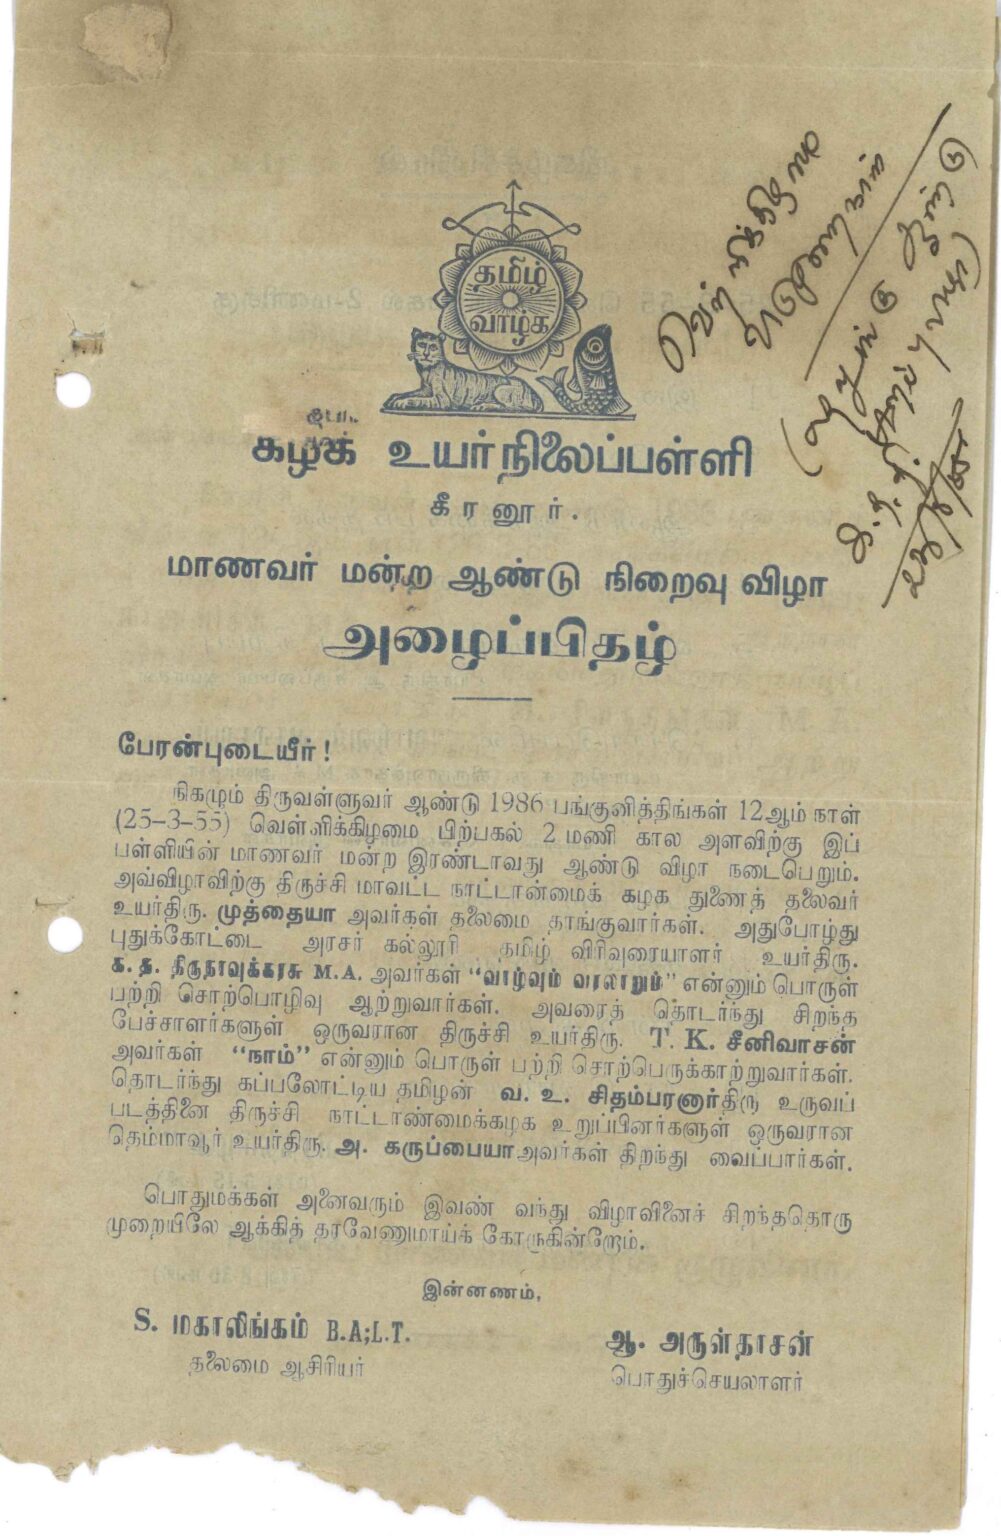 தமிழ்
வாழ்க
கழக உயர்நிலைப்பள்ளி
கீரனூர்.
மாணவர் மன்ற ஆண்டு நிறைவு விழா
அழைப்பிதழ்
பேரன்புடையீர் !
நிகழும் திருவள்ளுவர் ஆண்டு 1986 பங்குனித்திங்கள் 12ஆம் நாள்
(25-3-55) வெள்ளிக்கிழமை பிற்பகல் 2 மணி கால அளவிற்கு இப்
பள்ளியின் மாணவர் மன்ற இரண்டாவது ஆண்டு விழா நடைபெறும்.
அவ்விழாவிற்கு திருச்சி மாவட்ட நாட்டான்மைக் கழக துணைத் தலைவர்
உயர்திரு. முத்தையா அவர்கள் தலைமை தாங்குவார்கள். அதுபோழ்து
புதுக்கோட்டை அரசர் கல்லூரி தமிழ் விரிவுரையாளர் உயர்திரு.
க. த. திருநாவுக்கரசு M.A. அவர்கள் "வாழ்வும் வரலாறும்" என்னும் பொருள்
பற்றி சொற்பொழிவு ஆற்றுவார்கள். அவரைத் தொடர்ந்து சிறந்த
பேச்சாளர்களுள் ஒருவரான திருச்சி உயர்திரு. T. K. சீனிவாசன்
அவர்கள் "நாம்" என்னும் பொருள் பற்றி சொற்பெருக்காற்றுவார்கள்.
தொடர்ந்து கப்பலோட்டிய தமிழன் வ. உ. சிதம்பரனார்திரு உருவப்
படத்தினை திருச்சி நாட்டாண்மைக்கழக உறுப்பினர்களுள் ஒருவரான
தெம்மாவூர் உயர்திரு. அ. கருப்பையா அவர்கள் திறந்து வைப்பார்கள்.
பொதுமக்கள் அனைவரும் இவண் வந்து விழாவினைச் சிறந்ததொரு
முறையிலே ஆக்கித் தரவேணுமாய்க் கோருகின்றோம்.
இன்னணம்,
S. மகாலிங்கம் B.A;L.T.
தலைமை ஆசிரியர்
ஆ. அருள்தாசன்
பொதுச்செயலாளர்